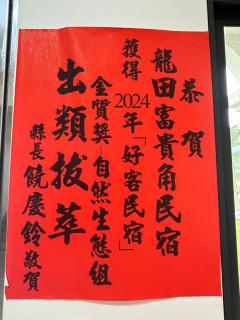 恭賀
龍田富貴角民宿
獲得2024年「好客民宿」
金質獎-自然生態組
出類拔萃
縣長饒慶鈴敬賀